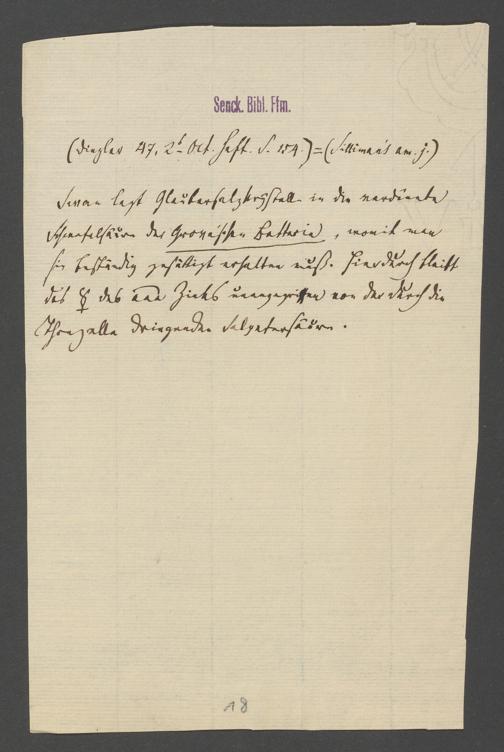 Senck. Bibl. Ffm.
(Dingler 47, 2t Oct. Heft. S. 154.) = (Silliman's am. j.)
Swan legt Glaubersalzkrystalle in die verdünnte
Schwefelsäure der Groveschen Batterie, womit man
sie beständig gesättigt erhalten muß. Hierdurch bleibt
das ☿ des Zinks unangegriffen von der durch die
Thonzelle dringenden Salpetersäure.
18